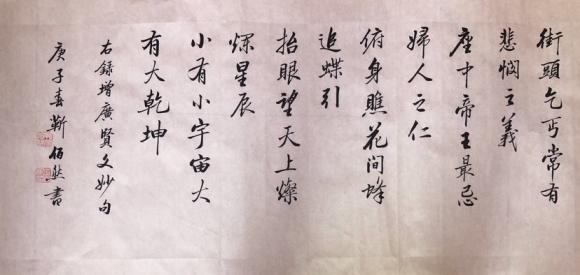 街頭乞丐常有
悲憫之義
座中帝王最忌
婦人之仁
俯身瞧花間蜂
追蝶引
抬眼望天上燦
爍星辰
小有小宇宙大
有大乾坤
右錄增廣賢文妙句
庚子春靳佰然書